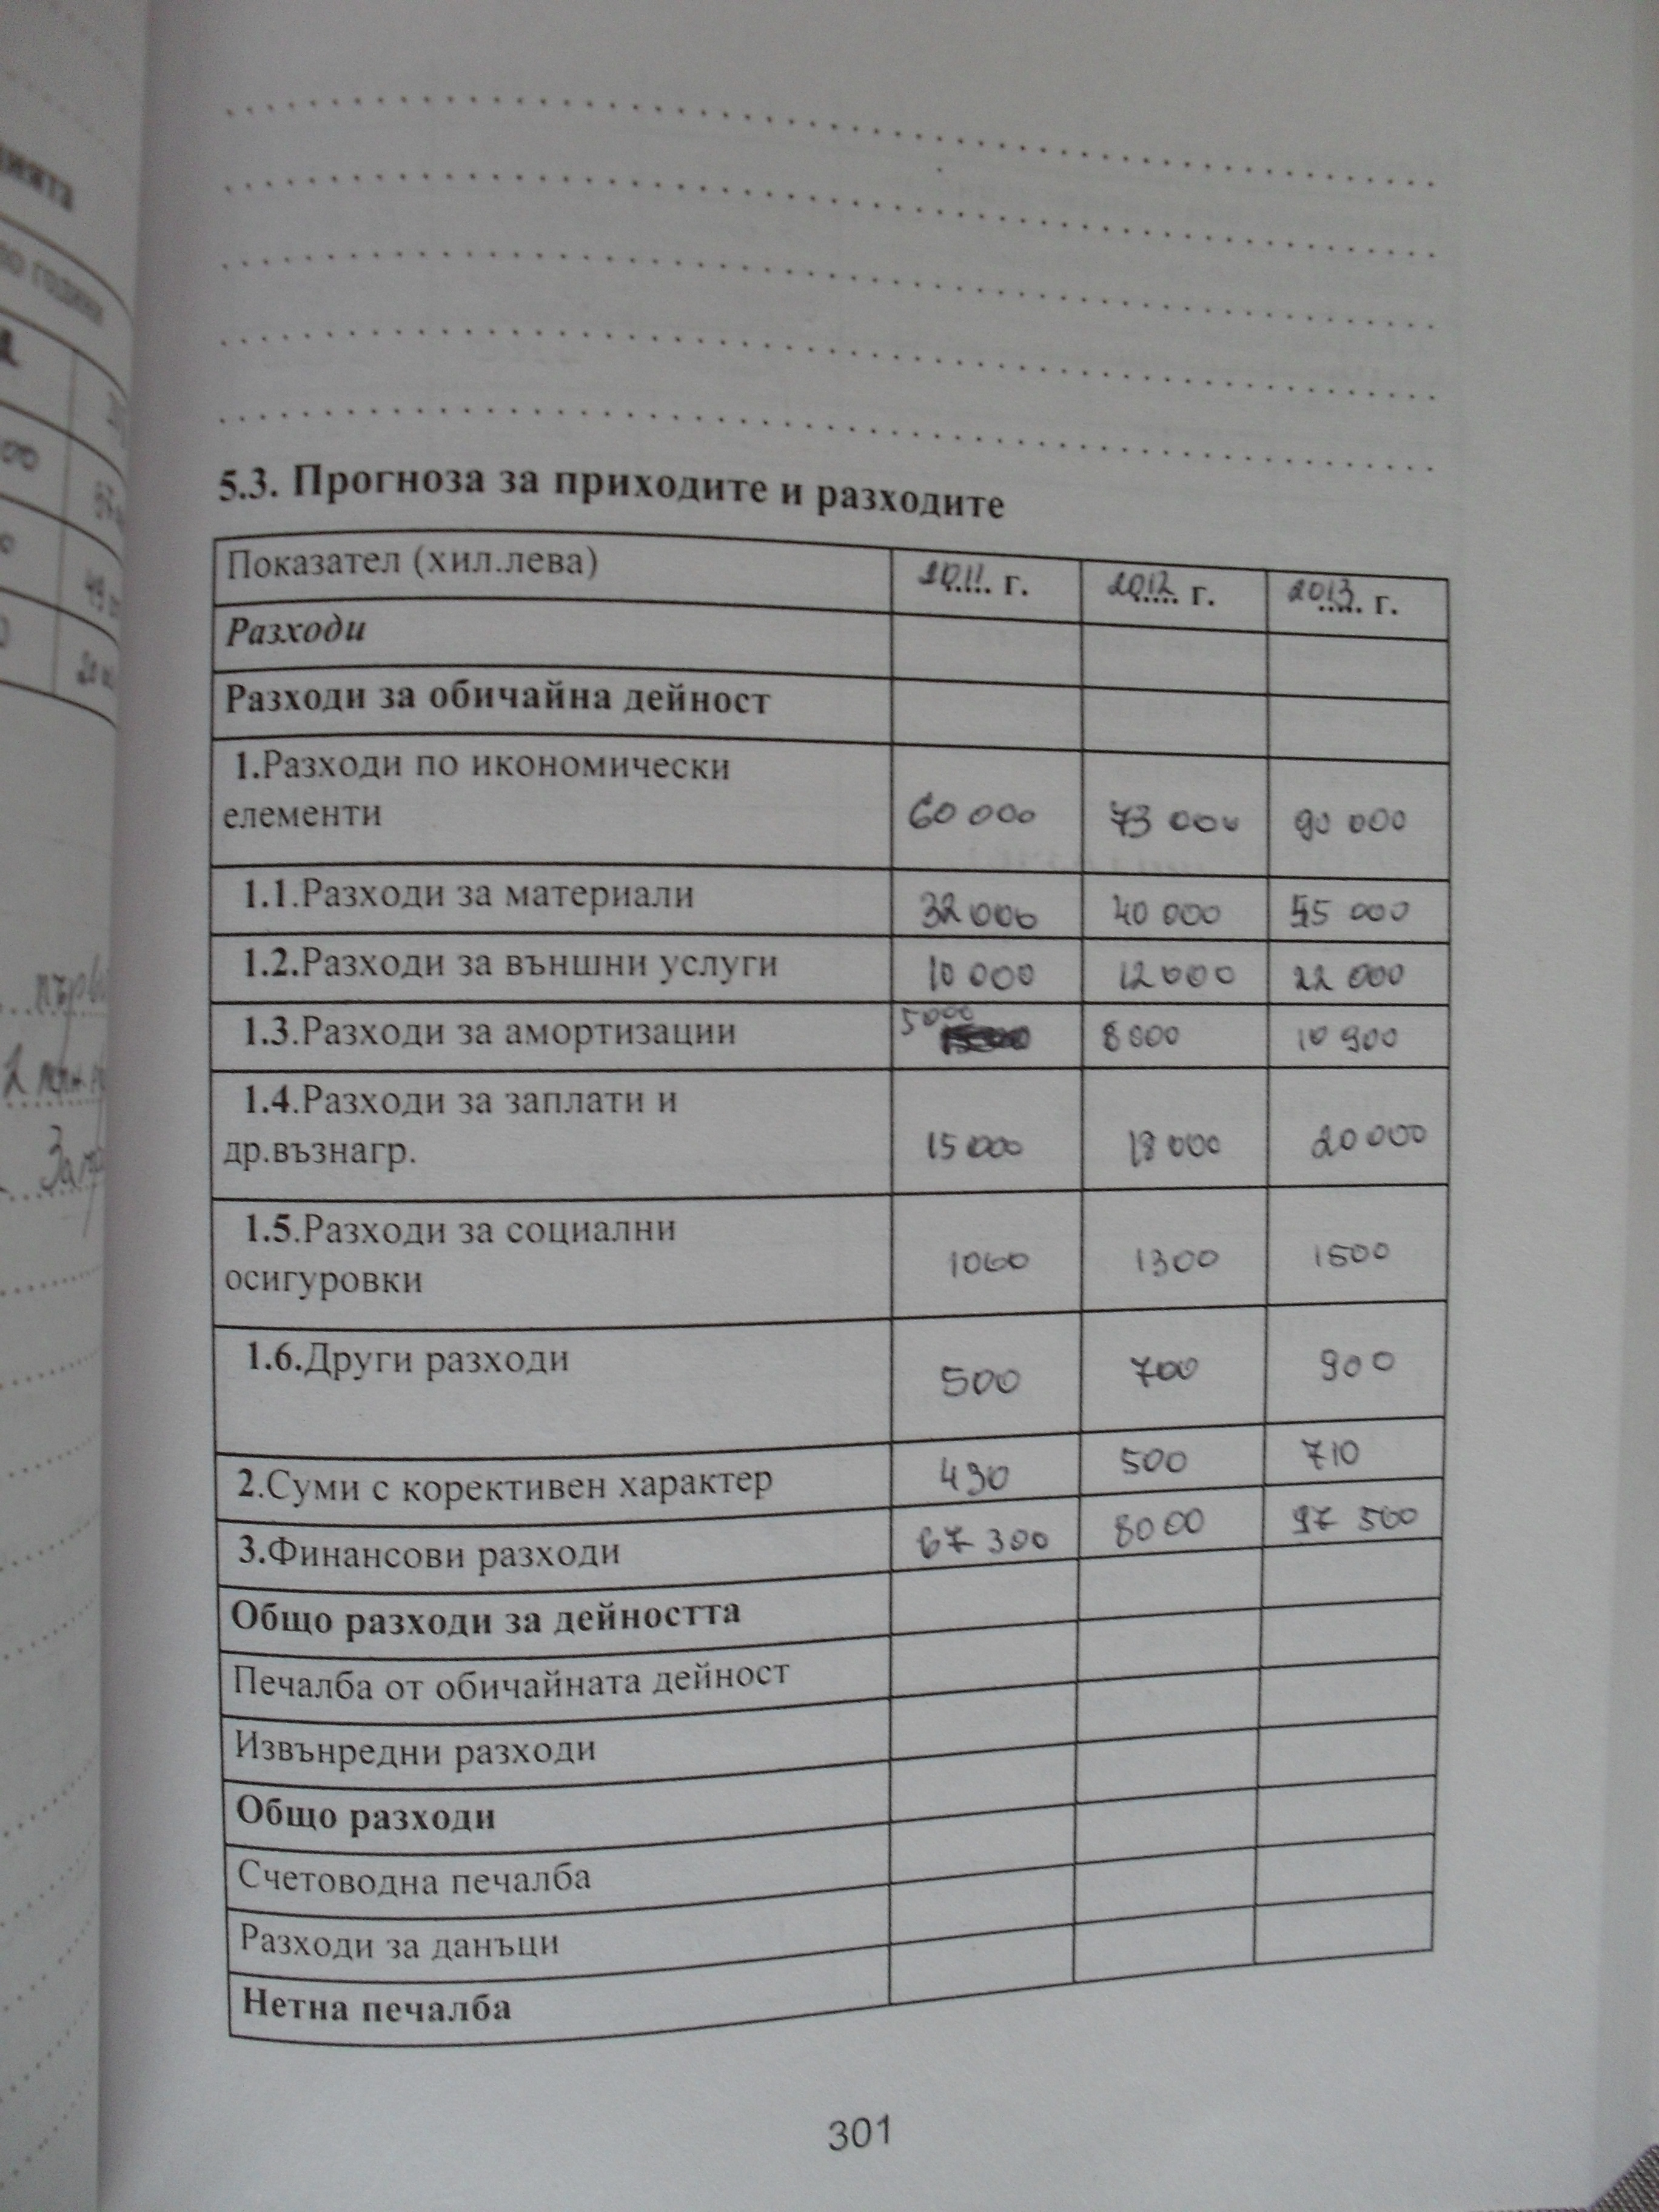 5.3. Прогноза за приходите и разходите
Показател (хил.лева) 2011 г. 2012 г. 2013 г.
Разходи
Разходи за обичайна дейност
1.Разходи по икономически
елементи 60 000 73 000 90 000
1.1.Разходи за материали 32 000 40 000 55 000
1.2.Разходи за външни услуги 10 000 12 000 22 000
1.3.Разходи за амортизации 5000 8000 10 900
1.4.Разходи за заплати и
др.възнагр. 15 000 18 000 20 000
1.5.Разходи за социални
осигуровки 1060 1300 1500
1.6.Други разходи 500 700 900
2.Суми с корективен характер 430 500 710
3.Финансови разходи 67 300 8000 97 500
Общо разходи за дейността
Печалба от обичайната дейност
Извънредни разходи
Общо разходи
Счетоводна печалба
Разходи за данъци
Нетна печалба
301